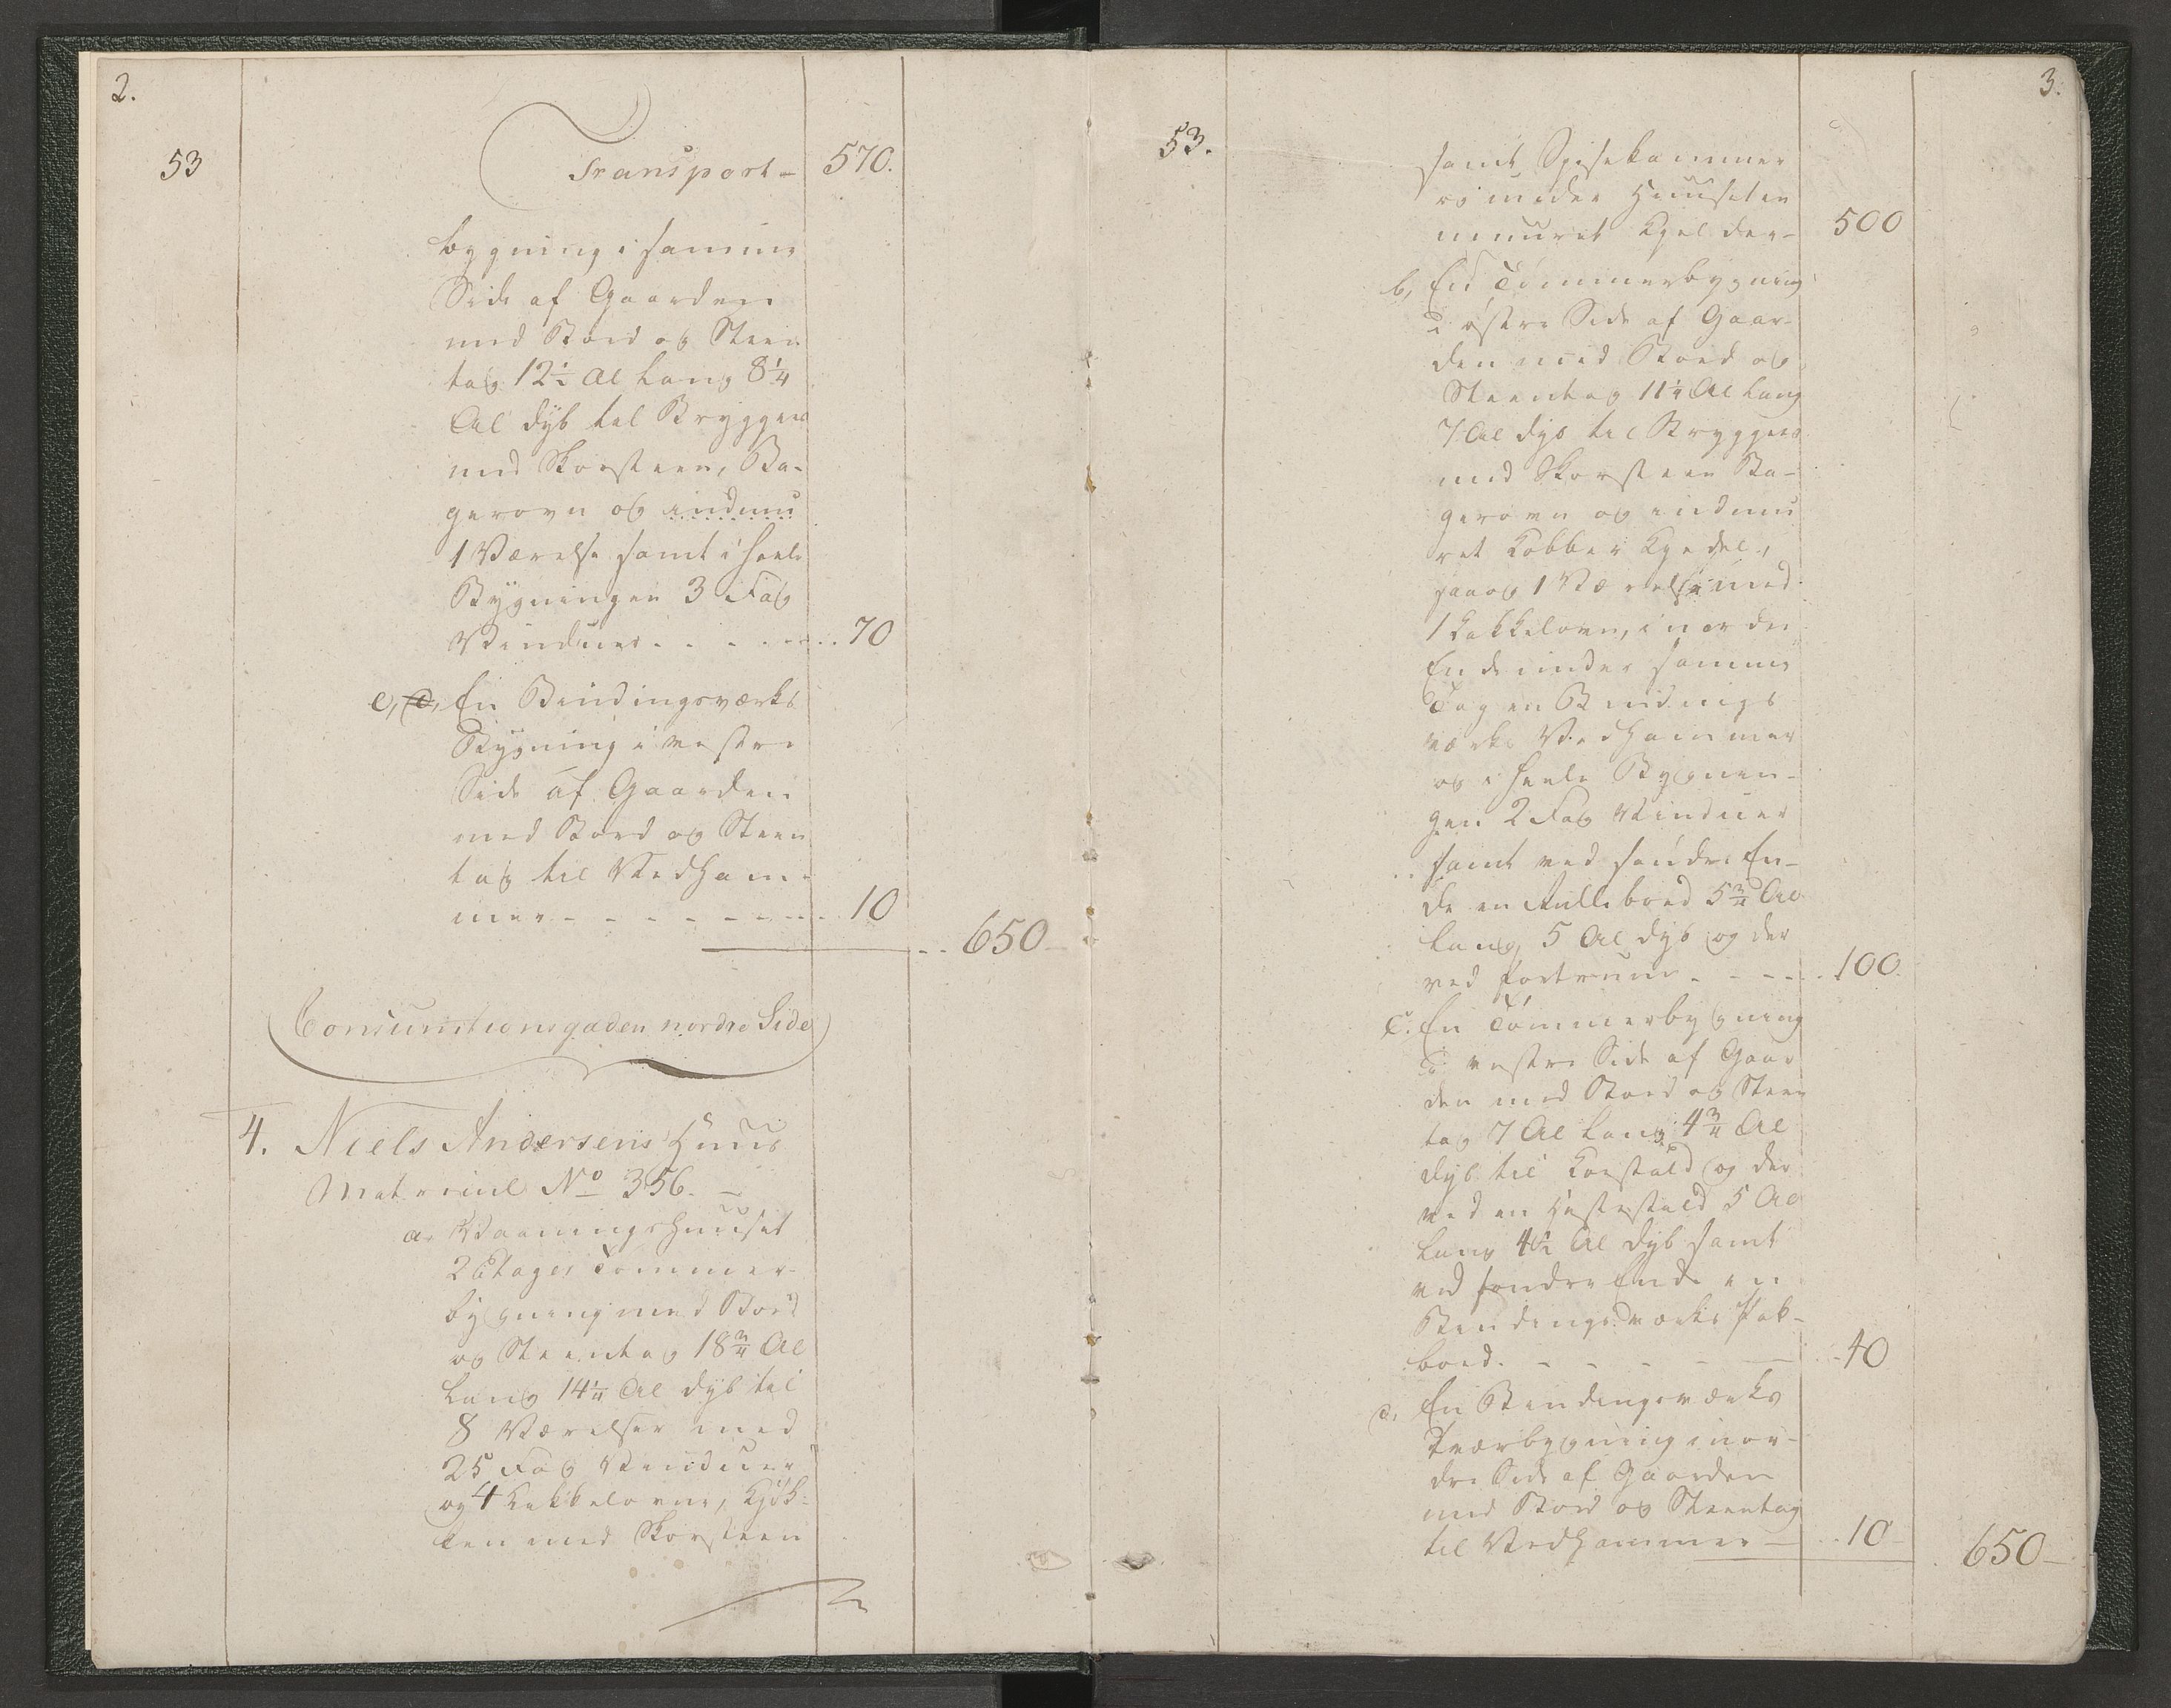 2.
53
Transport - 570.
bygning i samme
Side af Gaarden
med Bord og Steen
tag 12½ Al Lang 8¼
Al dyb til Bryggers
med Skorsteen, Ba-
gerovn og indmu
1 Værelse samt i heele
Bygningen 3 Fag
Vinduer - - - - - 70
e, En Bindingsværks
Bygning i vestre
Side af Gaarden
med Bord og Steen
tag til Vedkam-
mer - - - - - - 10
650
Consumtionsgaden nordre Side
4. Niels Andersens Huus
Materiul No 356. -
a. Vaaningshuuset
2 Etages Tømmer-
bygning med Bord
og Steentag 18¾ Al
Lang 14¼ Al dyb til
8 Værelser med
25 Fag Vinduer
og 4 Kakkelovne, Kjök-
ken med Skorsteen
3.
53.
samt Spisekammer
og under Huuset en
muuret Kjelder - 500
b, En Tømmerbygning
i østre Side af Gaar-
den med Bord og
Steentag 11¼ Al Lang
7 Al dyb til Bryggers
med Skorsteen Ba-
gerovn og indmu
ret Kobber Kjedel,
saa og 1 Værelse med
1 Kakkelovn, i nordre
Ende under samme
Tag en Bindings
værks Vedkammer
og i heele Bygnin-
gen 2 Fag Vinduer
samt ved søndre En-
de en Rullebod 5¾ Al
Lang, 5 Al dyb og der
ved Portrum - - - - 100.
c. En Tømmerbygning
i vestre Side af Gaar
den med Bord og Steen
tag 7 Al Lang 4¾ Al
dyb til Koestald og der
ved en Hestestald 5 Al
Lang 4½ Al dyb samt
ved søndre Ende en
Bindingsværks Pak-
boed. - - - - - - 40
d. En Bindingsværks
Tværbygning i nor-
dre Side af Gaarden
med Bord og Steentag
til Vedkammer - 10 -
650 -